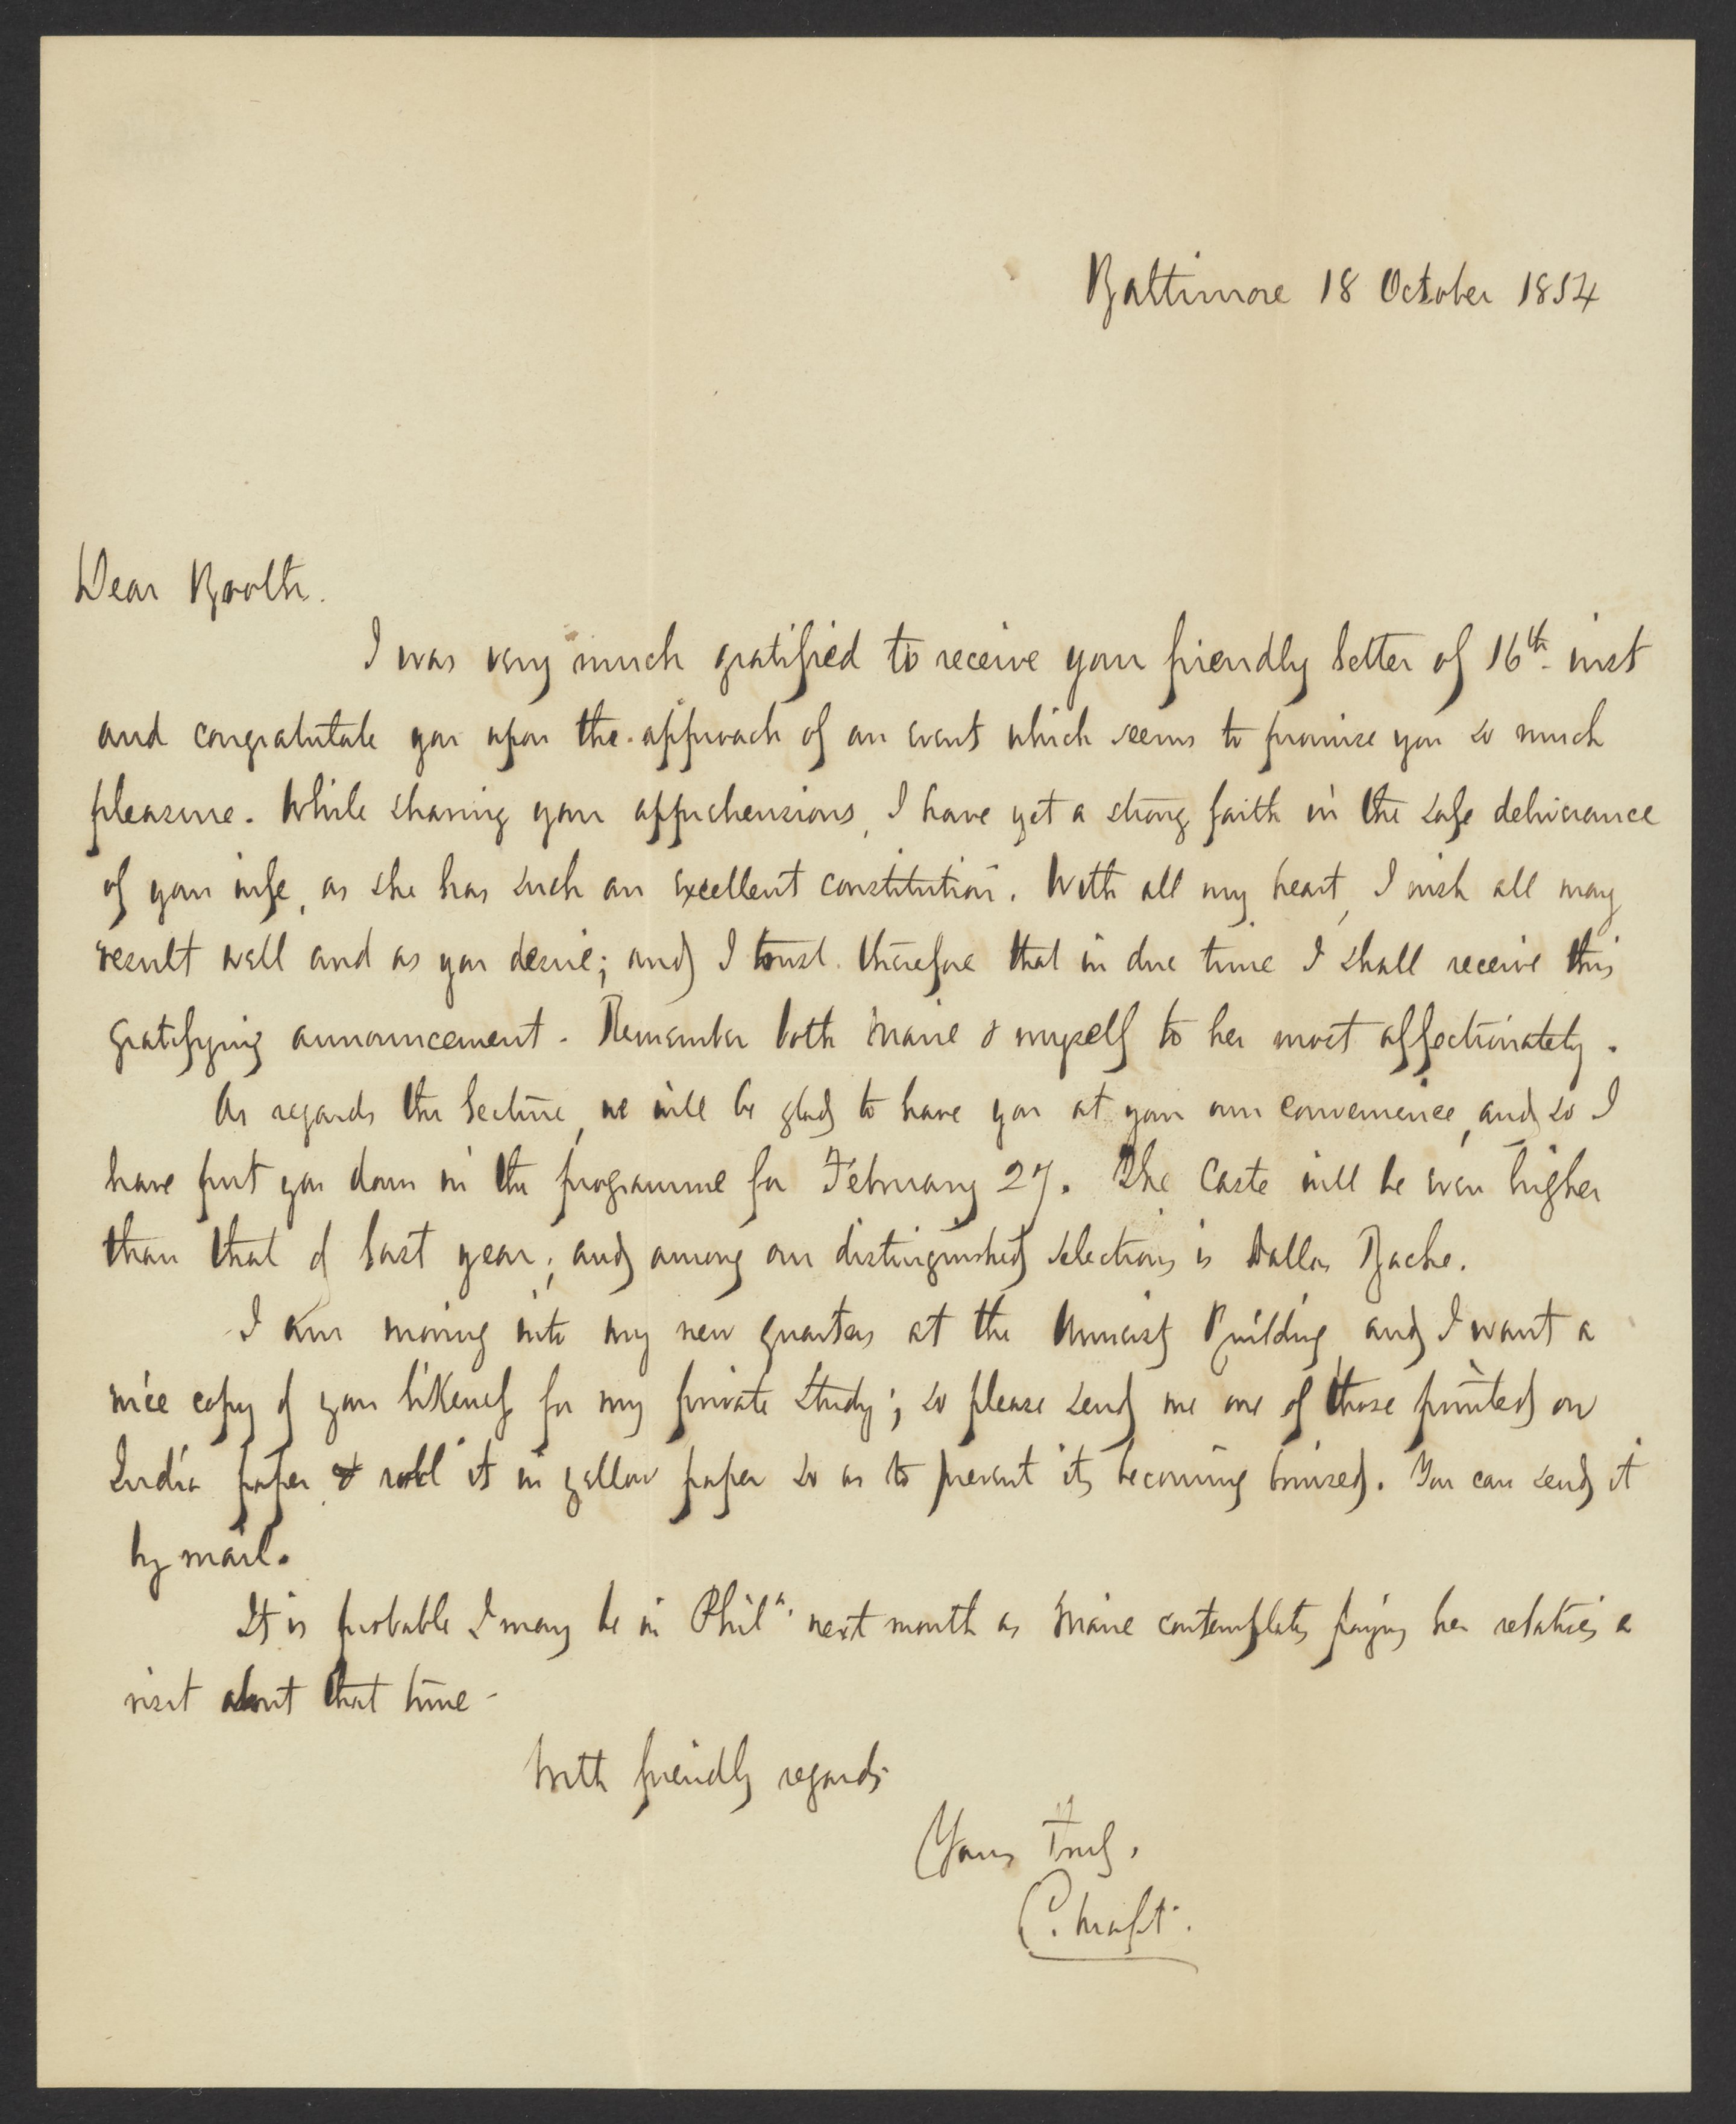 Baltimore 18 October 1854
Dear Booth.
I was very much gratified to receive your friendly letter of 16th. inst
and congratulate you upon the approach of an event which seems to promise you so much
pleasure. While sharing your apprehensions, I have yet a strong faith in the safe deliverance
of your wife, as she has such an excellent constitution. With all my heart, I wish all may
result well and as you desire; and I trust therefore that in due time I shall receive this
gratifying announcement. Remember both Marie & myself to her most affectionately.
As regards the Lecture, we will be glad to have you at your own convenience, and so I
have put you down in the programme for February 27. The Caste will be even higher
than that of last year; and among our distinguished selections is Dallas Bache.
I am moving into my new quarters at the University Building and I want a
nice copy of your likeness for my private study; so please send me one of those printed on
India paper & roll it in yellow paper so as to prevent its becoming bruised. You can send it
by mail.
It is probable I may be in Phila. next month as Marie contemplates paying her relatives a
visit about that time -
With friendly regards
Yours Truly,
C. Morfit.